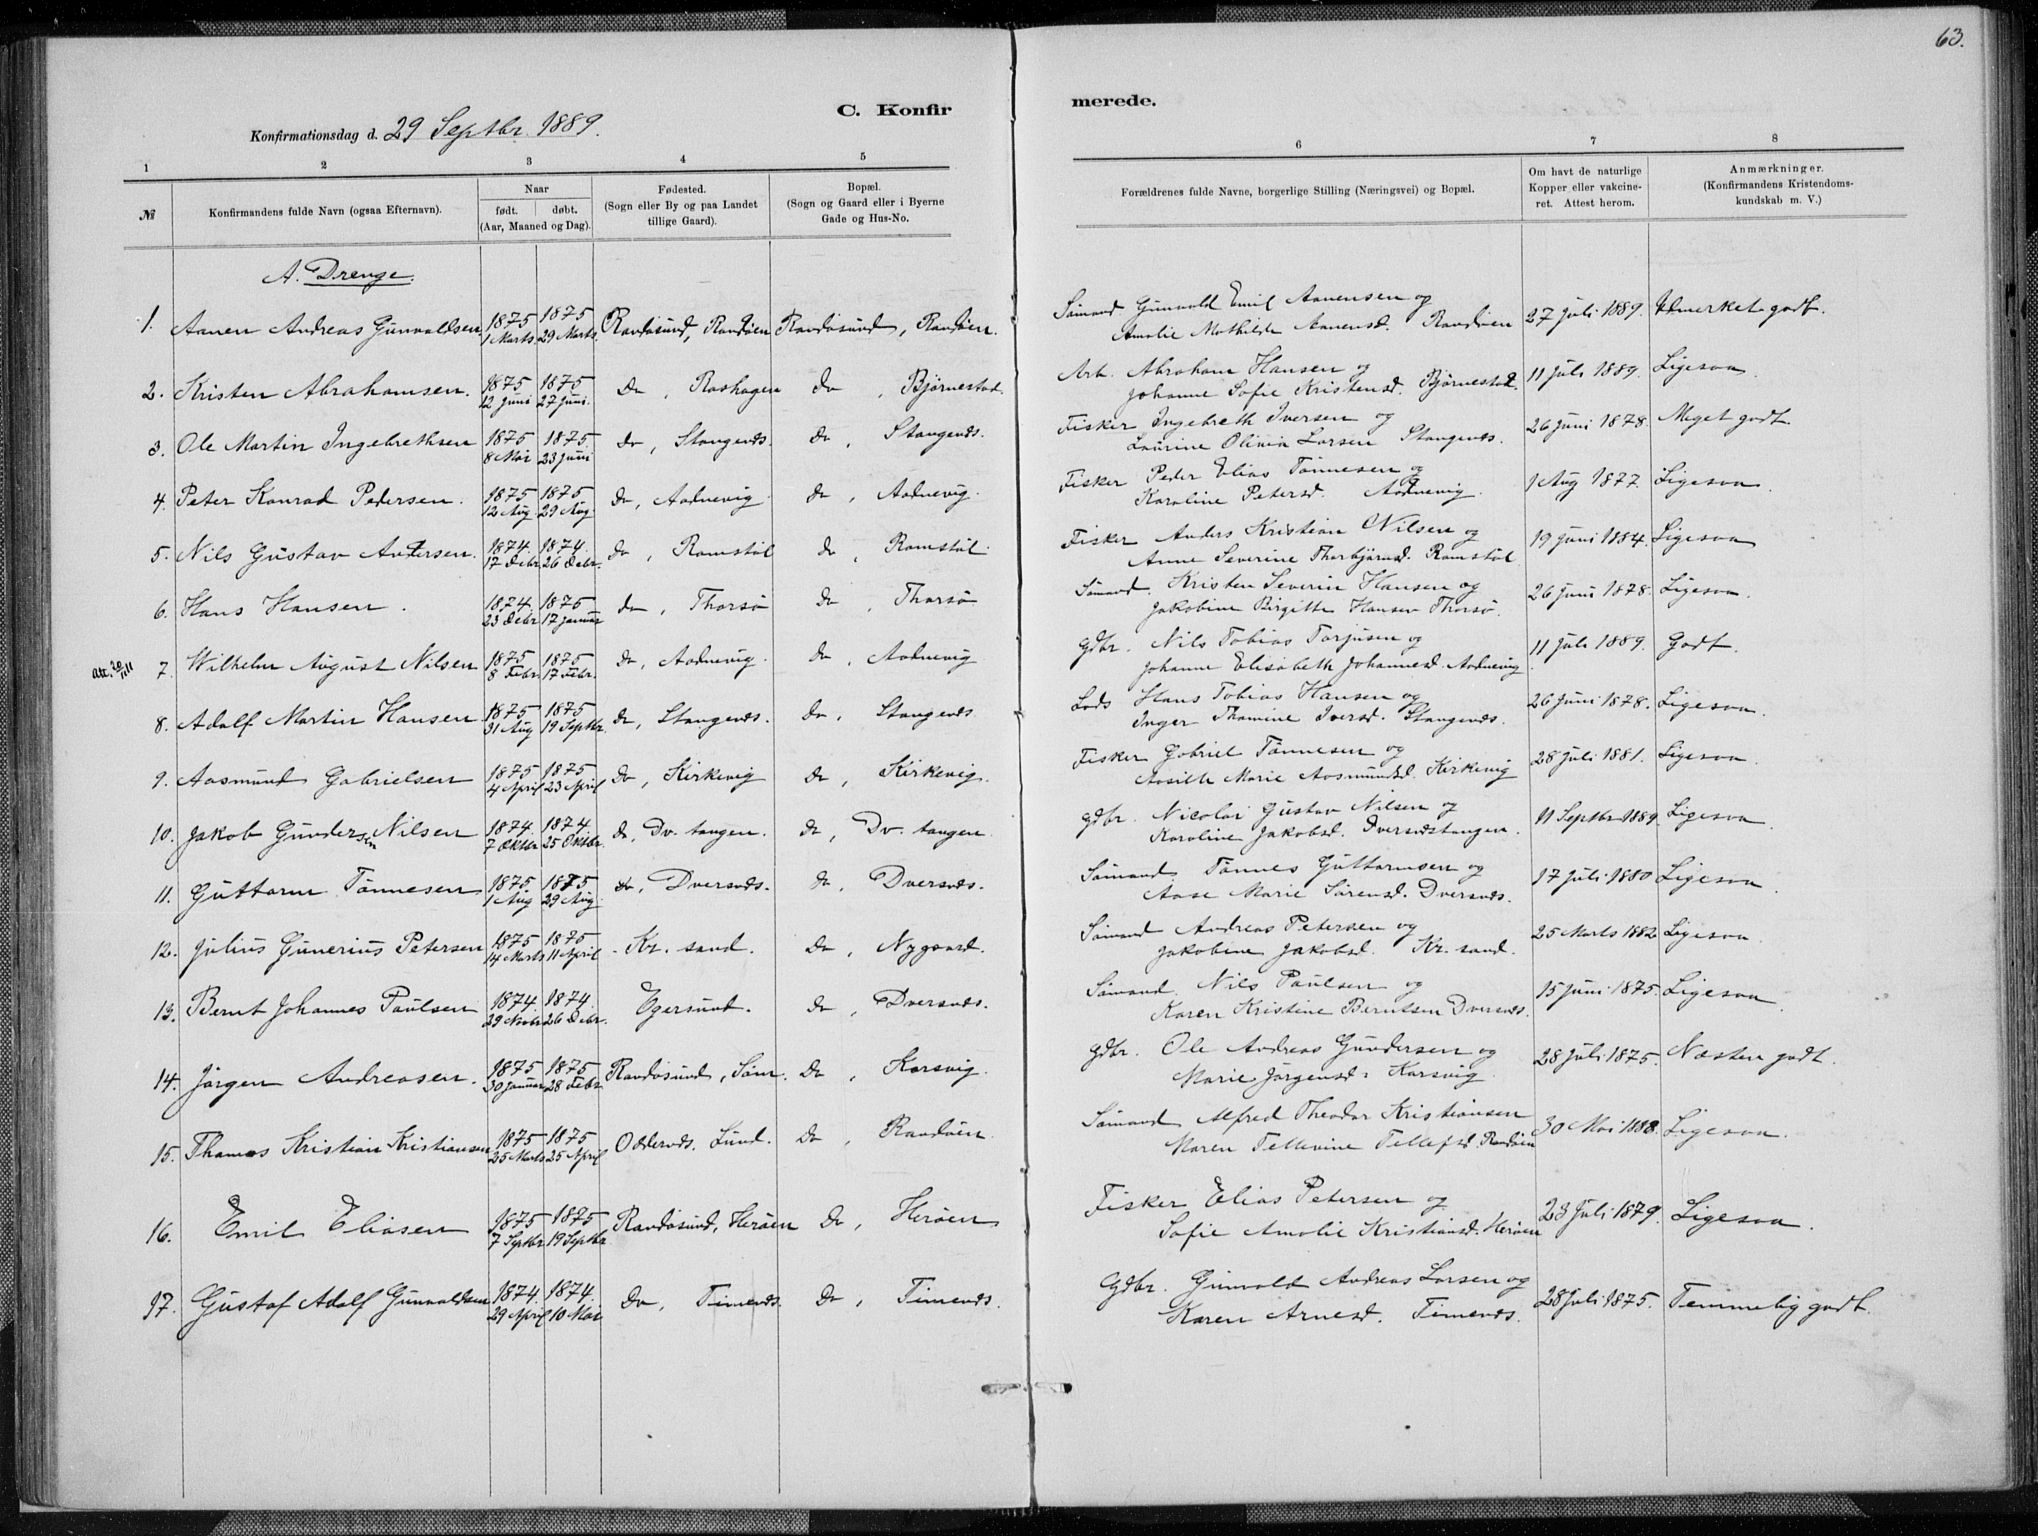 63.
C. Konfirmerede.
Konfirmationsdag d. 29 Septbr. 1889.
1 2 3 4 5 6 7 8
№
Konfirmandens fulde Navn (ogsaa Efternavn).
Naar
født. døbt.
(Aar, Maaned og Dag).
Fødested.
(Sogn eller By og paa Landet
tillige Gaard).
Bopæl.
(Sogn og Gaard eller i Byerne
Gade og Hus-No.
Forældrenes fulde Navne, borgerlige Stilling (Næringsvei) og Bopæl.
Om havt de naturlige
Kopper eller vakcine-
ret. Attest herom.
Anmærkninger.
(Konfirmandens Kristendoms-
kundskab m. V.)
A. Drenge.
1. Aanen Andreas Gunvaldsen 1875 1 Marts. 1875 29 Marts. Randøsund, Randøen Randøsund, Randøen. Sømand Gunvald Emil Aanensen og
Amalie Mathilde Aanensd. Randøen 27 Juli 1889. Udmerket godt.
2. Kristen Abrahamsen. 1875 12 Juni 1875 27 Juni. Do, Roshagen Do, Bjørnestad. Arb. Abraham Hansen og
Johanne Sofie Kristensd. Bjørnestad. 11 Juli 1889. Ligesaa.
3. Ole Martin Ingebrethsen 1875 8 Mai 1875 23 Juni do, Stangenæs. do, Stangenæs. Fisker Ingebreth Iversen og
Laurine Olivia Larsen Stangenæs. 26 Juni 1878. Meget godt.
4. Peter Konrad Pedersen. 1875 12 Aug. 1875 29 Aug. do, Aodnevig. do, Aodnevig. Fisker Peder Elias Tønnesen og
Karoline Petersd. Aodnevig. 1 Aug 1877. Ligesaa.
5. Nils Gustav Andersen. 1874. 17 Debr. 1874. 26 Debr. do, Romstøl do, Romstøl. Fisker Anders Kristian Nilsen og
Anne Severine Thorbjørnsd. Romstøl 19 Juni 1884. Ligesaa
6. Hans Hansen. 1874. 23 Debr. 1875 17 Januar do, Thorsø do, Thorsø Sømand. Kristen Severin Hansen og
Jakobine Birgitte Hansen Thorsø. 26 Juni 1878. Ligesaa.
att. 20/11 11
7. Wilhelm August Nilsen 1875 8 Febr. 1875 17 Febr. do, Aodnevig. do, Aodnevig gdbr. Nils Tobias Torjusen og
Johanne Elisabeth Johannesd. Aodnevig 11 Juli 1889. Godt.
8. Adolf Martin Hansen 1875 31 Aug 1875 19 Septbr. do, Stangenæs. do, Stangenæs Lods Hans Tobias Hansen og
Inger Thomine Iversd. Stangenæs. 26 Juni 1878. Ligesaa.
9. Aasmund Gabrielsen 1875 4 April 1875 23 April do, Kirkevig do, Kirkevig. Fisker Gabriel Tønnesen og
Marie Aasmundsd. Kirkevig 28 Juli 1881. Ligesaa.
10. Jakob Gundersen Nilsen 1874. 7 Oktbr 1874. 25 Oktbr. do, Dv. tangen. do, Dv. tangen. gdbr. Nicolai Gustav Nilsen og
Karoline Jakobsd. Dversnæstangen. 11 Septbr 1889. Ligesaa.
11. Guttorm Tønnesen 1875 1 Aug 1875 29 Aug. do, Dversnæs. do, Dversnæs. Sømand. Tønnes Guttormsen og
Aase Marie Sørensd. Dversnæs. 17 Juli 1880 Ligesaa.
12. Julius Gunerius Petersen 1875 14 Marts 1875 11 April - Kr. sand. Do, Nygaard. Sømand Andreas Petersen og
Jakobine Jakobsd. Kr. sand. 25 Marts 1882 Ligesaa.
13. Bernt Johannes Paulsen 1874. 29 Novbr. 1874. 26 Debr. Egersund. do, Dversnæs. Sømand. Nils Paulsen og
Karen Kristine Berntsen Dversnæs. 15 Juni 1875. Ligesaa.
14. Jørgen Andreasen. 1875 30 Januar 1875 28 Febr. Randøsund, Søm. Do, Korsvig. gdbr. Ole Andreas Gundersen og
Marie Jørgensd. Korsvig. 28 Juli 1875. Næsten godt.
15. Thomas Kristian Kristiansen 1875 25 Marts 1875 25 April Oddernæs. Lund. Do, Randøen. Sømand Alfred Theodor Kristiansen
Maren Tellevine Tellefsd. Randøen 30 Mai 1888. Ligesaa.
16. Emil Eliasen 1875 7 Septbr. 1875 19 Septbr. Randøsund, Herøen Do, Herøen Fisker Elias Petersen og
Sofie Amalie Kristiansd. Herøen 23 Juli 1879. Ligesaa.
17. Gustaf Adolf Gunvaldsen 1874. 29 April 1874. 10 Mai Do, Timenæs. Do, Timenæs. Gdbr. Gunvald Andreas Larsen og
Karen Arnesd. Timenæs. 28 Juli 1875. Temmelig godt.